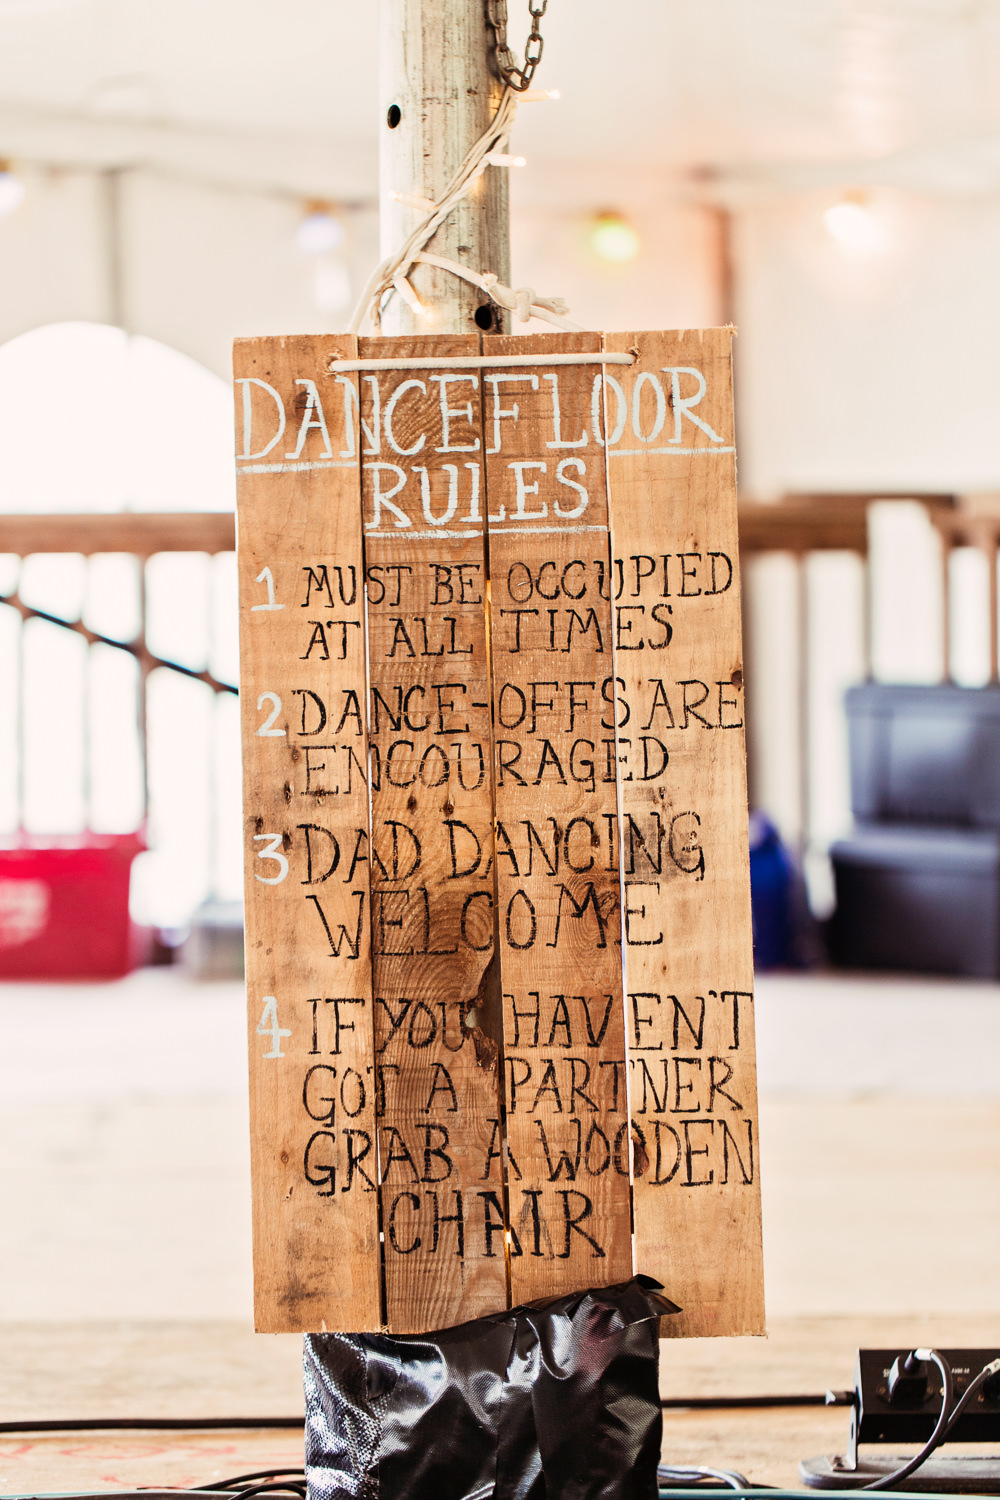 DANCEFLOOR
RULES
1 MUST BE OCCUPIED
AT ALL TIMES
2 DANCE-OFFS ARE
ENCOURAGED
3 DAD DANCING
WELCOME
4 IF YOU HAVEN'T
GOT A PARTNER
GRAB A WOODEN
CHAIR